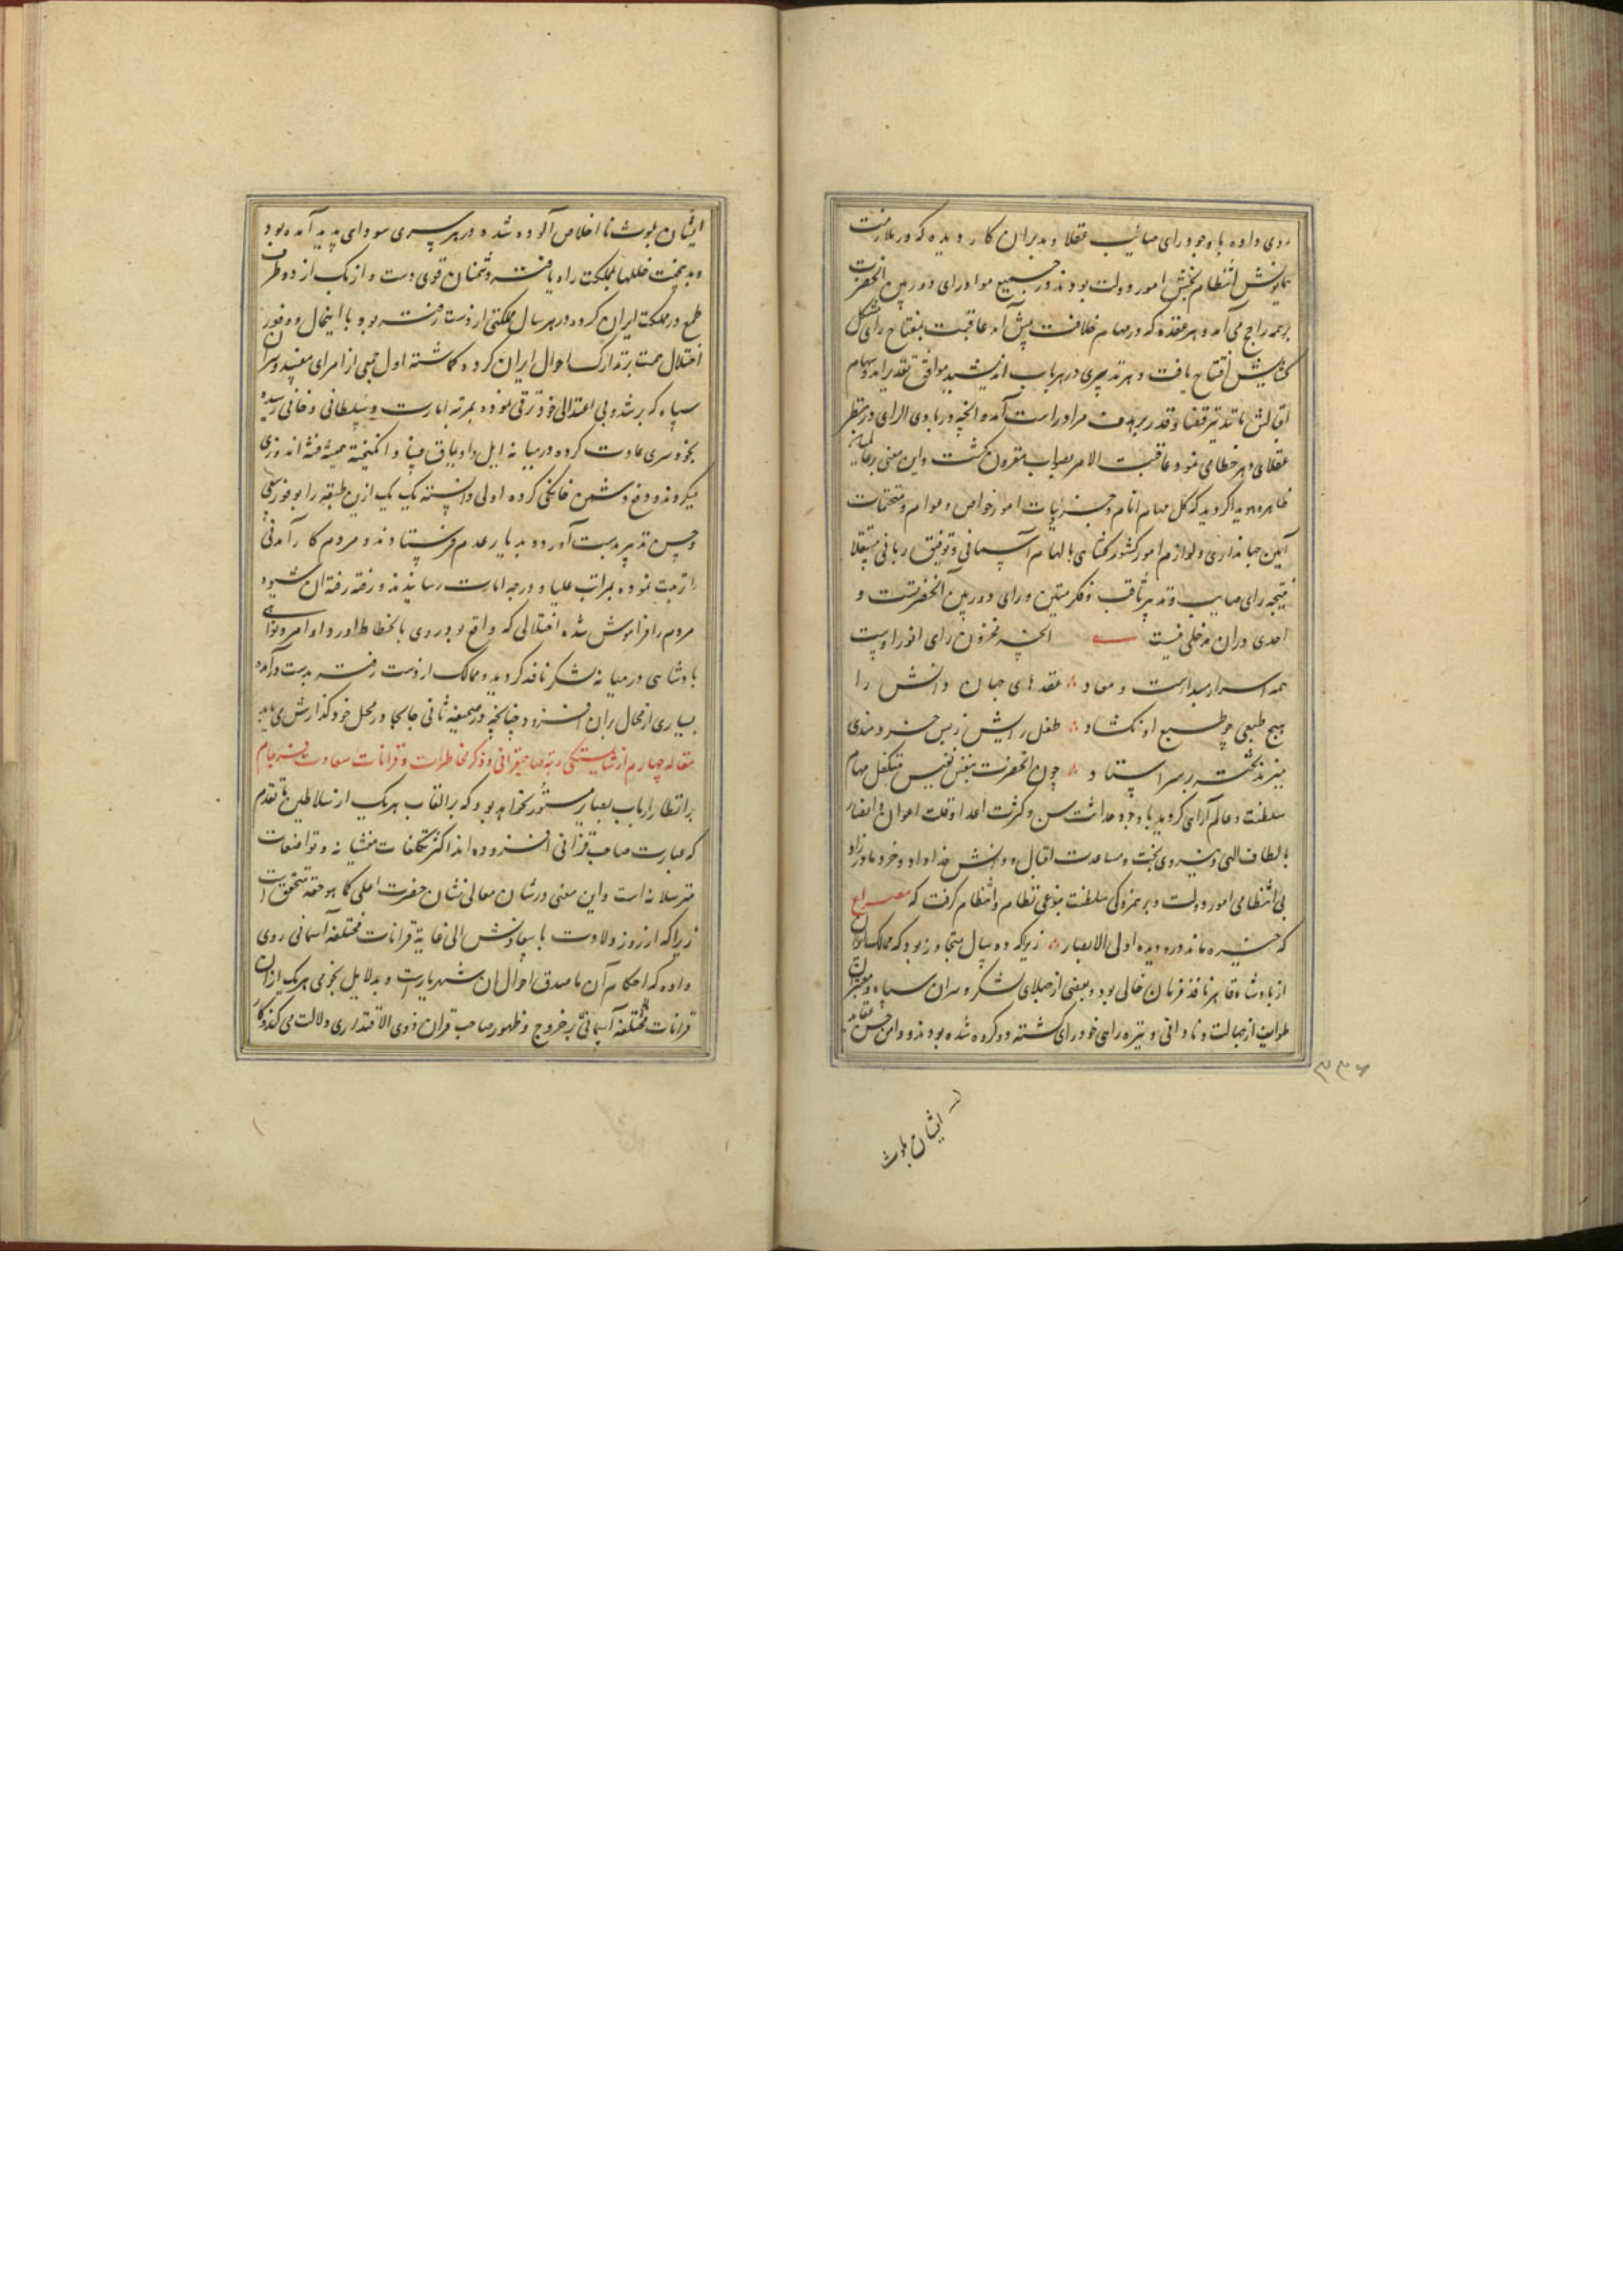 روی داده با وجود رای صائب عقلا و مدبران کار دیده که در ملازمت
همایونش انتظام بخش امور دولت بودند در جمیع مواد رای دوربین آنحضرت
بر همه راجح می آمد و هر عقده که در مهام خلافت پیش آمد عاقبت بمفتاح رای مشکل
کشایش افتتاح یافت و هر تدبیری در هر باب اندیشید موافق تقدیر آمد و سهام
اقبالش تا تند تیر قضا و قدر بر هدف مراد راست آمد و آنچه در بادی الرای در نظر
عقلای دهر خطا می نمود عاقبت الامر بصواب مقرون گشت و این معنی بر عالمیان
ظاهر و هویدا کردید که کل مهام انام و جزئیات امور خواص و عوام و متحتمات
آیین جهانداری و لوازم امور کشور کشایی بالهام آسمانی و توفیق ربانی مستقلا
نتیجه رای صایب و تدبیر ثاقب و فکر متین و رای دوربین آنحضرتست و
احدی در آن مدخلی نیست آنچه مخزون رای انور اوست
همه اسرار مبداست و معاد عقدهای جهان دانش را
هیچ طبعی چو طبع او نکشاد طفل رایش ز بس خردمندی
میزند تخته بر سر استاد چون آنحضرت بنفس نفیس متکفل مهام
سلطنت و عالم آرای کردید با وجود حداثت سن و کثرت اعدا و قلت اعوان و انصار
بالطاف الهی و نیروی بخت و مساعدت اقبال و دانش خداداد و خرد مادرزاد
بی انتظامی امور دولت و برهمزدکی سلطنت بنوعی نظام و انتظام گرفت که مصراع
که خیره ماند درو دیده اولی الابصار زیرا که ده سال متجاوز بود که ممالک ایران
از پادشاه قاهر نافذ فرمان خالی بود و بعضی از جهلای لشکر و سران سپاه و معتبران
طوایف از جهالت و نادانی و تیره رایی خودرای گشته دو گروه شده بودند و دامن حسن عقاید
۳۳۶
ایشان بلوث
ایشان بلوث نا اخلاص آلوده شده در هر سری سودای پدید آمده بود
و بدینجهت خللها بمملکت راه یافته و دشمنان قوی دست و ازبک از دو طرف
طمع در مملکت ایران کرده در هر سال مملکتی از دست رفته بود با اینحال و وفور
اختلال همت بر تدارک احوال ایران کرده گماشته اول جمعی از امرای مفسد و سران
سپاه که بر شد و بی اعتدالی خود ترقی نموده بمرتبه امارت و سلطانی و خانی رسیده
بخودسری عادت کرده در میانه ایل و اویماق فساد انگیخته همیشه فتنه اندوزی
میکردند و دفع دشمن خانکی کرده اولی دانسته یک یک ازین طبقه را بوفور سعی
و حسن تدبیر بدست آورده بدیار عدم فرستادند و مردم کار آمدنی
را تربیت نموده بمراتب علیا و درجه امارت رسانیدند و رفته رفته آن شیوه
مردم را فراموش شده اختلالی که واقع بود روی بانحطاط آورد و اوامر و نواهی
پادشاهی در میانه لشکر نافذ گردید و ممالک از دست رفته بدست درآمده
بسیاری از محال بران افزود چنانچه در صحیفه ثانی جابجا در محل خود گذارش می یابد
مقاله چهارم از شایستگی رتبه صاحبقرانی و ذکر مخاطرات و قرانات سعادت فرجام
بر انظار ارباب بصایر مستور نخواهد بود که بر القاب هر یک از سلاطین ما تقدم
که عبارت صاحب قرانی افزوده اند اکثر تکلفات منشیانه و تواضعات
مترسلانه است و این معنی در شان معالی نشان حضرت اعلی کما هو حقه متحقق است
زیرا که از روز ولادت با سعادتش الی غایه قرانات مختلفه آسمانی روی
داده که احکام آن ما صدق احوال آن شهریارست و بدلایل نجومی هر یک از ان
قرانات مختلفه آسمانی بر خروج و ظهور صاحب قران ذوی الاقتداری دلالت می کند و کار